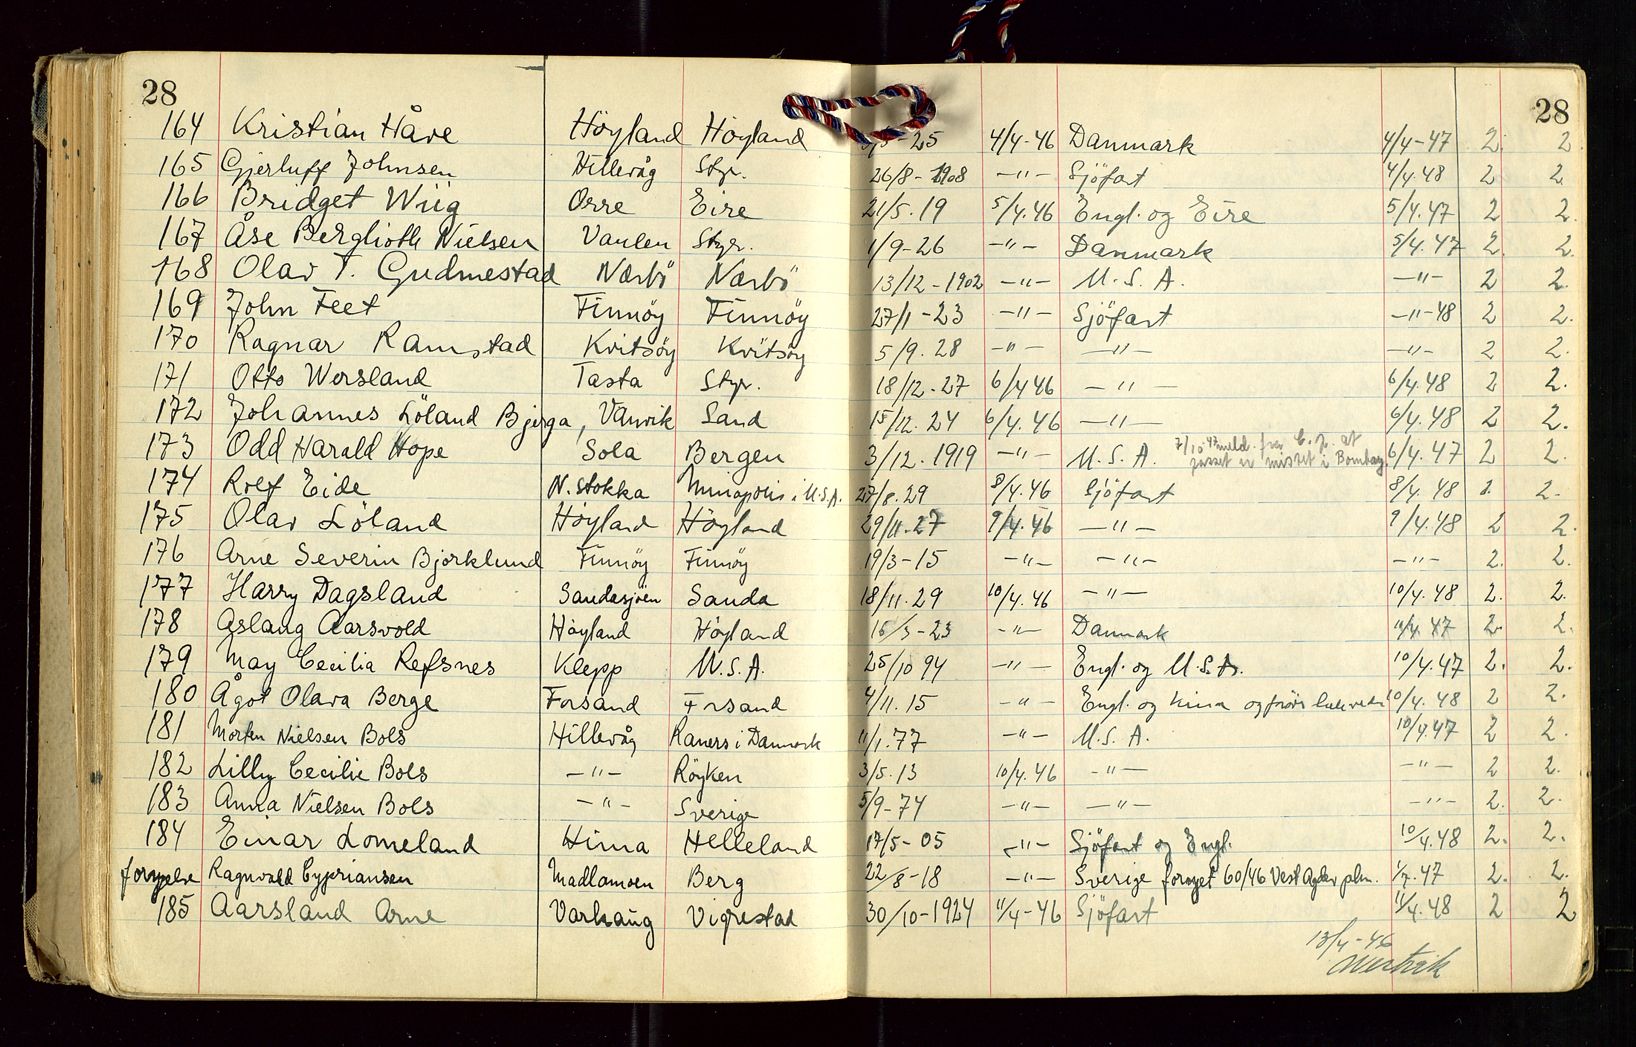 28 28
164 Kristian Håve Höyland Höyland 25 4/4-46 Danmark 4/4-47 2. 2.
165 Gjerluff Johnsen Hillevåg Styr. 26/8-1908 -"- Sjöfart 4/4.48 2 2.
166 Bridget Wiig Orre Eire 21/5.19 5/4.46 Engl. og Eire 5/4.47 2 2.
167 Åse Berglioth Nielsen Vaulen Styr. 1/9-26 -"- Danmark 5/4.47 2. 2.
168 Olav T. Gudmestad Nærbö Nærbö 13/12-1902 -"- U.S.A. -"- 2 2.
169 John Feet Finnöy Finnöy 27/1-23 -"- Sjöfart -"-48 2 2.
170 Ragnar Ramstad Kvitsöy Kvitsöy 5/9.28 -"- -"- -"- 2 2.
171 Otto Worsland Tasta Styr. 18/12-27 6/4 46 -"- 6/4.48 2 2.
172 Johannes Löland Bjerga, Vanvik Sand 15/12.24 6/4.46 -"- 6/4.48 2 2.
173 Odd Harald Hope Sola Bergen 3/12.1919 -"- U.S.A. 7/10 47 meld. fra C.p. at passet er mistet i Bombay. 6/4.47 2 2.
174 Rolf Eide N. Stokka Minapolis i U.S.A. 27/8.29 8/4.46 Sjöfart 8/4.48 2. 2.
175 Olav Löland Höyland Höyland 29/11.27 9/4.46 -"- 9/4.48 2 2.
176 Arne Severin Bjorklund Finnöy Finnöy 19/3-15 -"- -"- -"- 2. 2.
177 Harry Dagsland Sandasjöen Sanda 18/11.29 10/4.46 -"- 10/4.48 2. 2.
178 Aslaug Aarsvold Höyland Höyland 16/3-23 -"- Danmark 11/4.47 2. 2.
179 May Cecilia Refsnes Klepp U.S.A. 25/10 94 -"- Engl. og U.S.A. 10/4.47 2. 2.
180 Ågot Olava Berge Forsand Forsand 4/11.15 -"- Engl. og Kina og 10/4.48 2 2.
181 Morten Nielsen Bols Hillevåg Raners i Danmark 11/1.77 -"- U.S.A. 10/4.47 2 2.
182 Lilly Cecilie Bols -"- Röyken 3/5.13 10/4.46 -"- -"- 2 2.
183 Anna Nielsen Bols -"- Sverige 5/9-74 -"- -"- -"- 2. 2.
184 Einar Lomeland Hinna Helleland 17/5-05 -"- Sjöfart og Engl. 10/4.48 2. 2.
fornyelse Ragnvald Cypriansen Madlamoen Berg 22/8-18 -"- Sverige fornyet 60/46 Vest Agder plm. 1/7.47 2. 2.
185 Aarsland Arne Varhaug Vigrestad 30/10-1924 11/4-46 Sjöfart 11/4.48 2 2
13/4-46